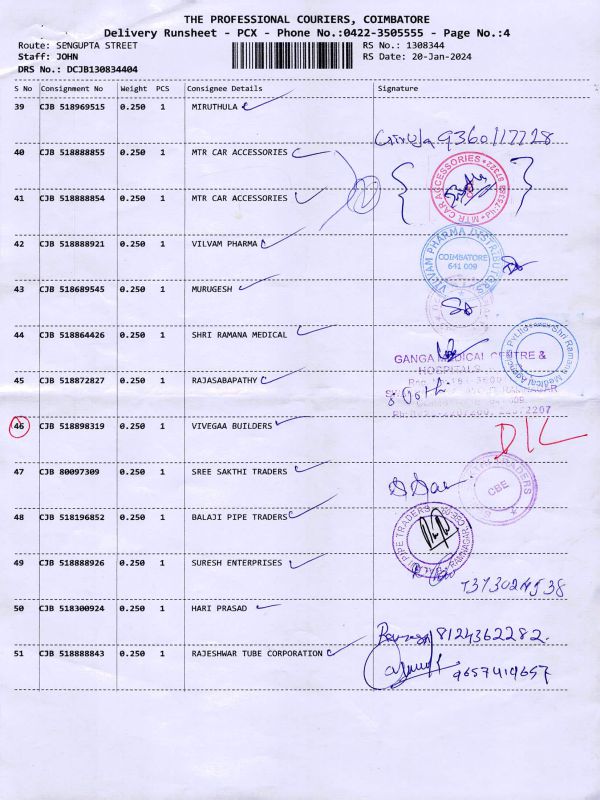 THE PROFESSIONAL COURIERS, COIMBATORE
Delivery Runsheet - PCX - Phone No.:0422-3505555 - Page No.:4
Route: SENGUPTA STREET RS No.: 1308344
Staff: JOHN RS Date: 20-Jan-2024
DRS No.: DCJB130834404
S No Consignment No Weight PCS Consignee Details Signature
39 CJB 518969515 0.250 1 MIRUTHULA
9360117728
40 CJB 518888855 0.250 1 MTR CAR ACCESSORIES
MTR CAR ACCESSORIES
41 CJB 518888854 0.250 1 MTR CAR ACCESSORIES
42 CJB 518888921 0.250 1 VILVAM PHARMA
VILVAM PHARMA DISTRIBUTORS
COIMBATORE
641 009
43 CJB 518689545 0.250 1 MURUGESH
44 CJB 518864426 0.250 1 SHRI RAMANA MEDICAL
Shri Ramana Medical Agencies Pvt Ltd
GANGA MEDICAL CENTRE &
HOSPITALS
45 CJB 518872827 0.250 1 RAJASABAPATHY
46 CJB 518898319 0.250 1 VIVEGAA BUILDERS
D/L
47 CJB 80097309 0.250 1 SREE SAKTHI TRADERS
TRADERS
CBE
48 CJB 518196852 0.250 1 BALAJI PIPE TRADERS
PIPE TRADERS
49 CJB 518888926 0.250 1 SURESH ENTERPRISES
50 CJB 518300924 0.250 1 HARI PRASAD
8124362282.
51 CJB 518888843 0.250 1 RAJESHWAR TUBE CORPORATION
9657414657